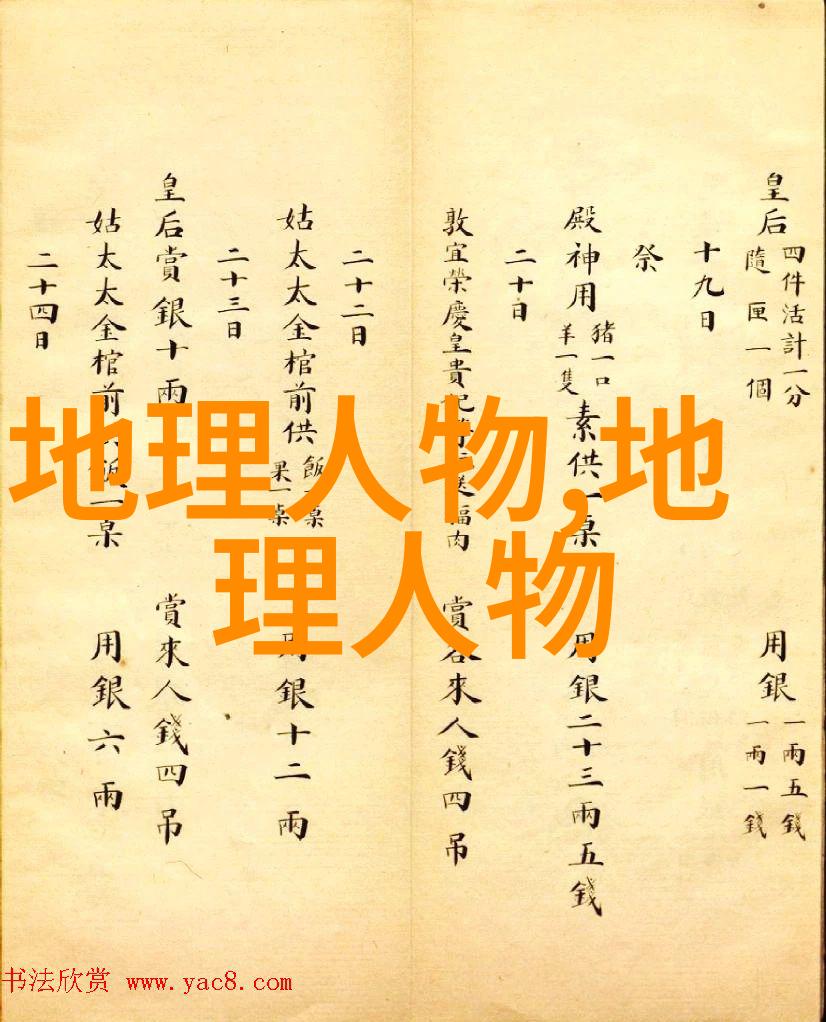 皇后 四件活計一分 隨匣一個 用銀 一兩五錢 一兩一錢
十九日
祭
殿神用 豬一口 羊一隻 素供一桌 用銀二十三兩五錢
二十日
敦宜榮慶皇貴妃 送福肉 賞 來人錢四吊
二十二日
姑太太金棺前供 飯一桌 果一桌 用銀十二兩
二十三日
皇后賞銀十兩 賞來人錢四吊
姑太太金棺前供飯一桌 用銀六兩
二十四日
地理人物,地
理人物
书法欣赏 www.yac8.com